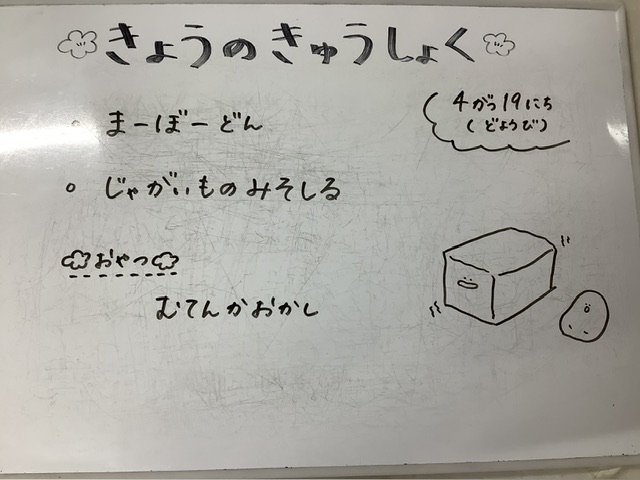 きょうのきゅうしょく
4がつ19にち
(どようび)
。まーぼーどん
。じゃがいものみそしる
おやつ
むてんかおかし